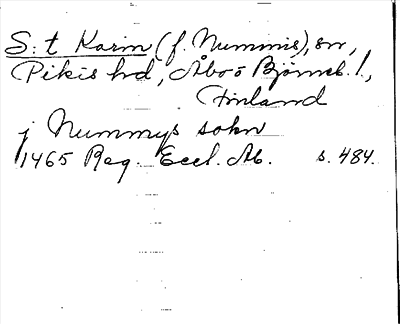 S:t Karin (f. Nummis), sn,
Pikis hd, Åbo o Björneb. l.,
Finland
j Nummys sokn
1465 Reg. Eccl. Ab. s. 484.